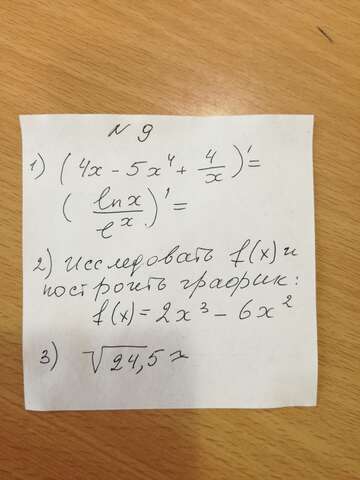 N 9
1) (4x - 5x⁴ + 4/x)' =
(ln x / eˣ)' =
2) Исследовать f(x) и
построить график:
f(x) = 2x³ - 6x²
3) √24,5 ≈